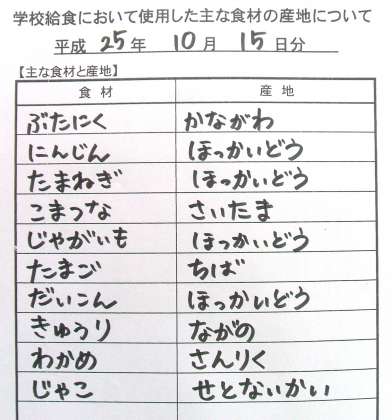 学校給食において使用した主な食材の産地について
平成 25 年 10 月 15 日分
【主な食材と産地】
食 材 産 地
ぶたにく かながわ
にんじん ほっかいどう
たまねぎ ほっかいどう
こまつな さいたま
じゃがいも ほっかいどう
たまご ちば
だいこん ほっかいどう
きゅうり ながの
わかめ さんりく
じゃこ せとないかい